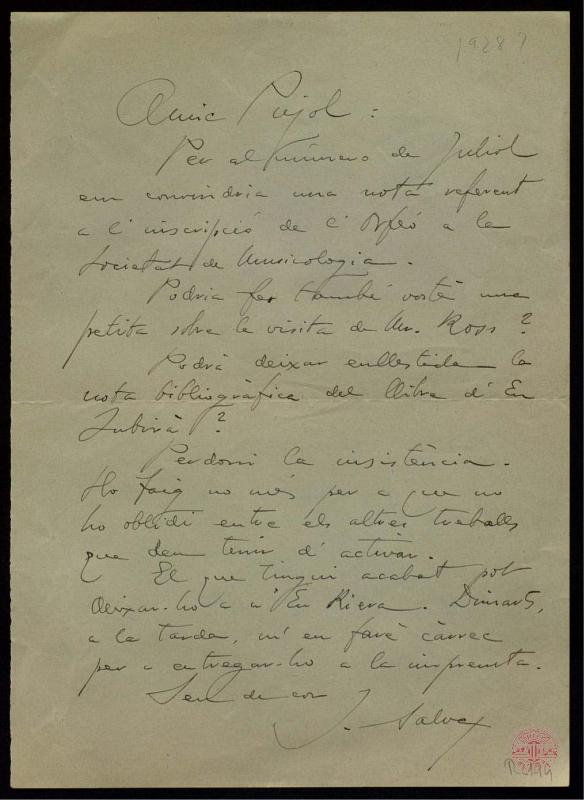 1928?
Amic Pujol:
Per al número de Juliol
em convindria una nota referent
a l'inscripció de l'Orfeó a la
Societat de Musicologia.
Podria fer també vostè una
petita sobre la visita de Mr. Ross?
Podrà deixar enllestida la
nota bibliogràfica del llibre d'En
Subirà?
Perdoni la insistència.
Ho faig no més per a que no
ho oblidi entre els altres treballs
que deu tenir d'activar.
El que tingui acabat pot
deixar-ho a n'En Riera. Dimarts,
a la tarda, m'en faré càrrec
per a entregar-ho a la impremta.
Seu de cor
J. Salvat